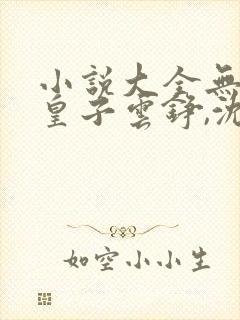 小説大全無
皇子雲錚,沈
如空小小生